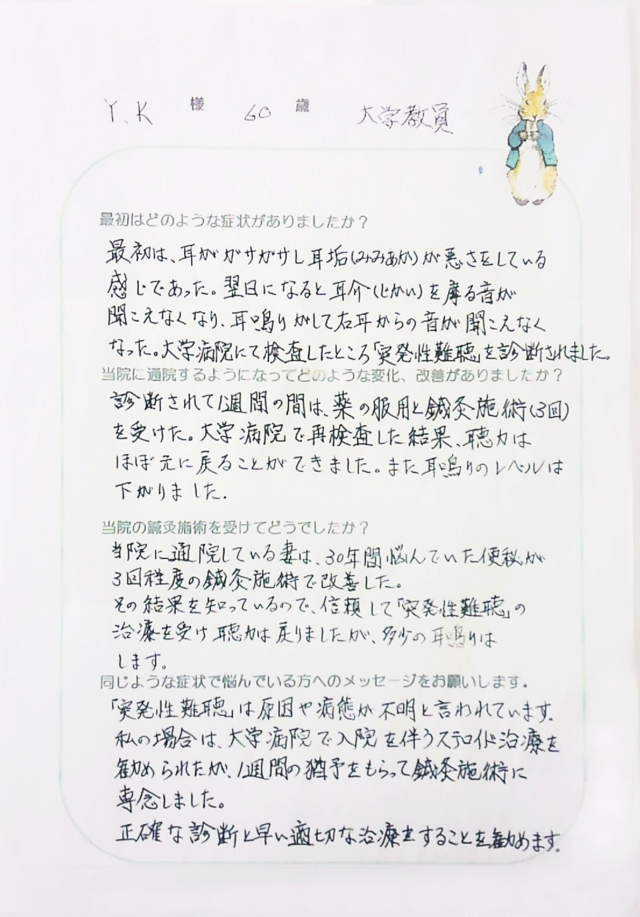 Y.K 様 60 歳 大学教員
最初はどのような症状がありましたか？
最初は、耳がガサガサし耳垢(みみあか)が悪さをしている
感じであった。翌日になると耳介(じかい)を摩る音が
聞こえなくなり、耳鳴りがして右耳からの音が聞こえなく
なった。大学病院にて検査したところ「突発性難聴」を診断されました。
当院に通院するようになってどのような変化、改善がありましたか？
診断されて1週間の間は、薬の服用と鍼灸施術(3回)
を受けた。大学病院で再検査した結果、聴力は
ほぼ元に戻ることができました。また耳鳴りのレベルは
下がりました.
当院の鍼灸施術を受けてどうでしたか？
当院に通院している妻は、30年間悩んでいた便秘が
3回程度の鍼灸施術で改善した。
その結果を知っているので、信頼して「突発性難聴」の
治療を受け聴力は戻りましたが、多少の耳鳴りは
します。
同じような症状で悩んでいる方へのメッセージをお願いします。
「突発性難聴」は原因や病態が不明と言われています。
私の場合は、大学病院で入院を伴うステロイド治療を
勧められたが、1週間の猶予をもらって鍼灸施術に
専念しました。
正確な診断と早い適切な治療をすることを勧めます。